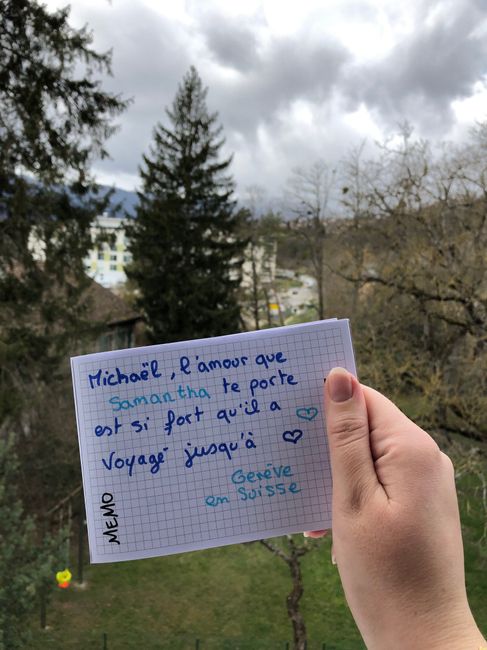 Michaël, l'amour que
Samantha te porte
est si fort qu'il a
voyagé jusqu'à
Genève
en Suisse
MEMO